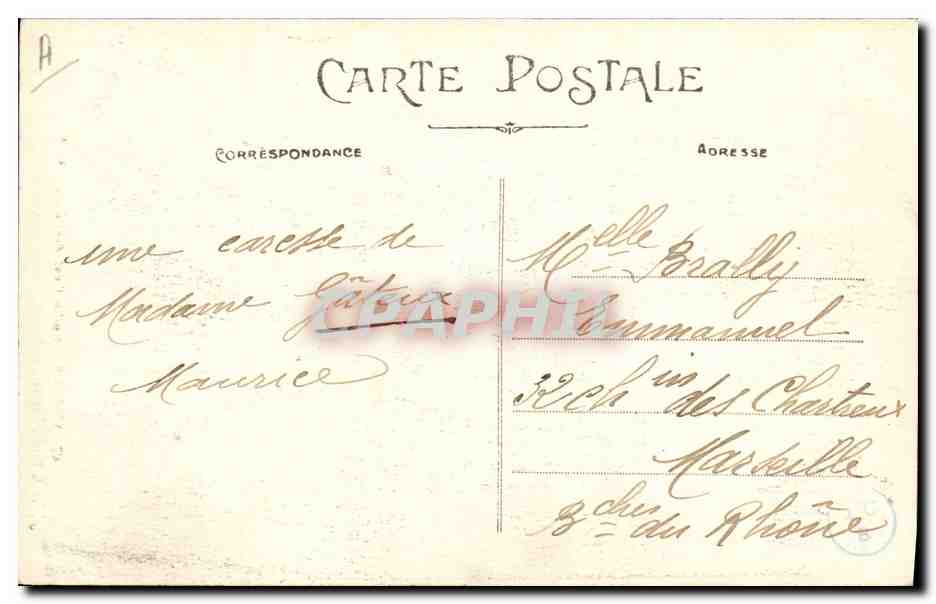 A
CARTE POSTALE
CORRESPONDANCE
ADRESSE
une caresse de
Madame Gâteux
Maurice
Melle Brally
Emmanuel
32 ch in des Chartreux
Marseille
Bches du Rhône
CPAPHIL